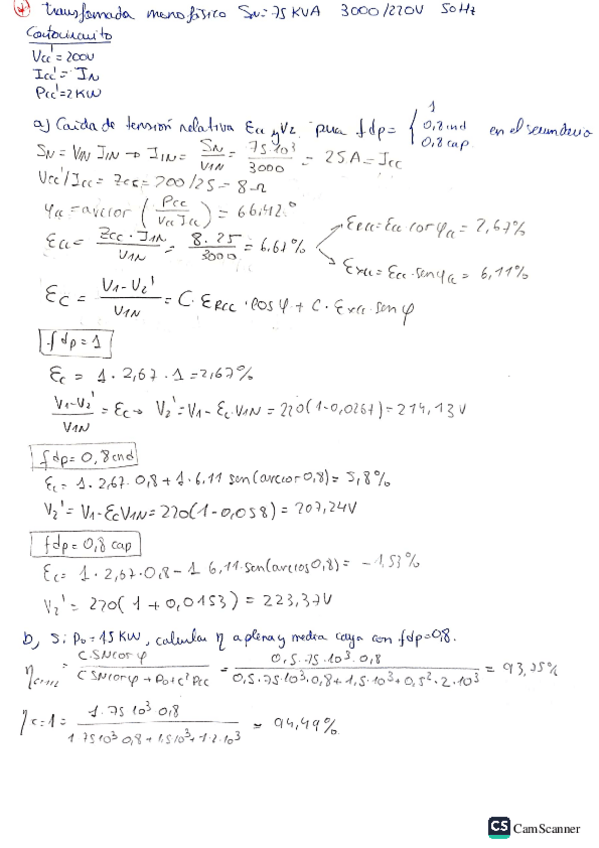 transformada monofásico Sn=75KVA 3000/220V 50Hz
Cortocircuito
Vcc'=200V
Icc'=IN
Pcc'=2KW
a) Caída de tensión relativa Ecc y V2 para fdp= { 1 0,8ind 0,8cap en el secundario
SN=VIN IIN → I1N= SN/V1N = 75·10³/3000 = 25A=Icc
Vcc'/Icc=Zcc=200/25=8Ω
φcc=arccos(Pcc/Vcc Icc)=66,42°
Ecc= Zcc·I1N/V1N = 8·25/3000 = 6,67% ERcc=Ecc cosφcc=2,67%
Excc=Ecc·senφcc=6,11%
Ec= V1-V2'/V1N = C·ERcc·cosφ+C·Excc·senφ
fdp=1
Ec=1·2,67·1=2,67%
V1-V2'/V1N=Ec→ V2'=V1-Ec·V1N=220(1-0,0267)=214,13V
fdp=0,8ind
Ec=1·2,67·0,8+1·6,11 sen(arccos 0,8)=5,8%
V2'=V1-EcV1N=220(1-0,058)=207,24V
fdp=0,8cap
Ec=1·2,67·0,8-1 6,11·sen(arccos0,8)=-1,53%
V2'=220(1+0,0153)=223,37V
b) Si Po=1,5KW, calcular η a plena y media carga con fdp=0,8.
ηc=1/2 = C·SNcosφ/C SNcosφ+Po+C²Pcc = 0,5·75·10³·0,8/0,5·75·10³·0,8+1,5·10³+0,5²·2·10³ = 93,75%
ηc=1= 1·75 10³ 0,8/1·75 10³ 0,8+1,5 10³+1·2·10³ = 94,49%
CS CamScanner